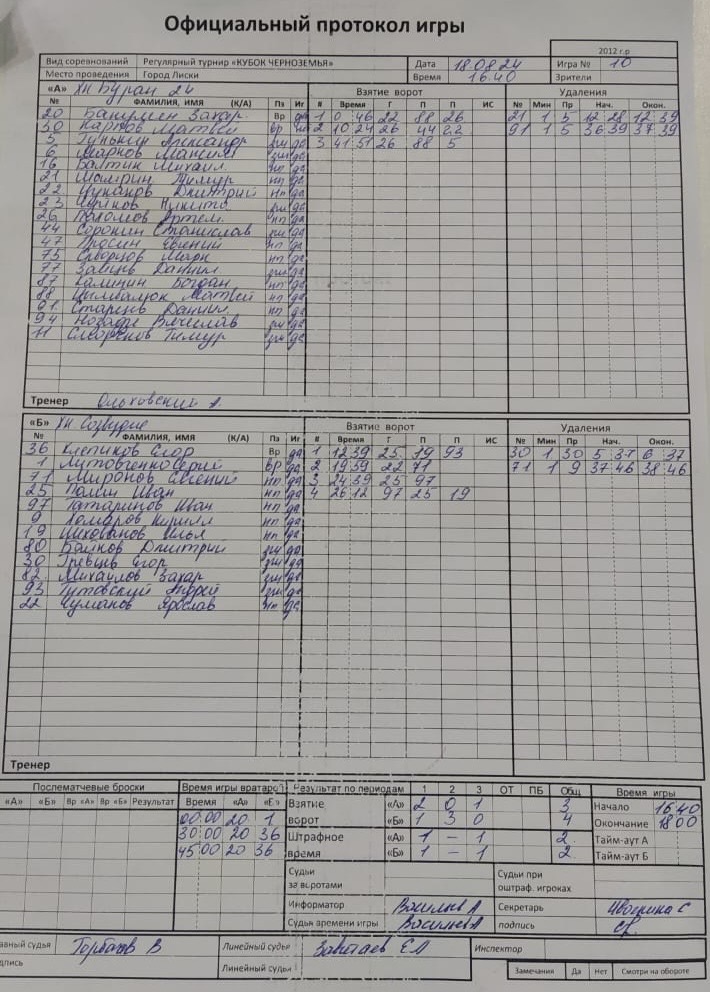 Официальный протокол игры
2012 г.р
Вид соревнований Регулярный турнир «КУБОК ЧЕРНОЗЕМЬЯ» Дата 18.08.24 Игра № 10
Место проведения Город Лиски Время 16.40 Зрители
«А» ХК Буран 24 Взятие ворот Удаления
№ ФАМИЛИЯ, ИМЯ (К/А) Пз Иг # Время Г П П ИС № Мин Пр Нач. Окон.
20 Захар Вр да 1 0 46 22 88 26 21 1 5 12 28 12 39
30 Карпов Матвей вр 2 10 24 26 44 22 91 1 5 36 39 37 39
5 Александр зщ да 3 41 51 26 88 5
6 Марков Максим зщ да
16 Балтин Михаил да
21 Тимур нп да
22 Цуканов Дмитрий нп да
23 Никита зщ да
26 Пахомов Артем нп да
44 Сорокин Станислав зщ да
47 Просин Евгений нп да
75 Скворцов Марк нп да
77 Даниил зщ да
87 Калинин Богдан нп да
88 Цымбалюк Матвей нп да
91 Старень Данил нп да
94 Вячеслав зщ да
11 Тимур зщ да
Тренер Ольховский А.
«Б» ХК Созвудие Взятие ворот Удаления
№ ФАМИЛИЯ, ИМЯ (К/А) Пз Иг # Время Г П П ИС № Мин Пр Нач. Окон.
36 Клепиков Егор Вр да 1 12 39 25 19 93 30 1 30 5 37 6 37
1 Литовченко Сергий вр да 2 19 59 22 71 71 1 9 37 46 38 46
71 Миронов Евгений нп да 3 24 39 25 97
25 Иван нп да 4 26 12 97 25 19
97 Татаринов Иван нп да
9 Комаров Кирилл нп да
19 Илья нп да
80 Байков Дмитрий зщ да
30 Гревень Егор зщ да
82 Михайлов Захар зщ да
93 Гутовский Андрей зщ да
22 Чуманов Ярослав нп да
Тренер
Послематчевые броски Время игры вратарей Результат по периодам 1 2 3 ОТ ПБ Общ Время игры
«А» «Б» Вр «А» Вр «Б» Результат Время «А» «Б» Взятие «А» 2 0 1 3 Начало 16 40
00 00 20 1 ворот «Б» 1 3 0 4 Окончание 18 00
30 00 20 36 Штрафное «А» 1 – 1 2 Тайм-аут А
45 00 20 36 время «Б» 1 – 1 2 Тайм-аут Б
Судьи за воротами Судьи при оштраф. игроках
Информатор Васильев А Секретарь С
Судья времени игры Васильев А подпись
Главный судья Горбачов В Линейный судья Завитаев Е Инспектор
Линейный судья Замечания Да Нет Смотри на обороте